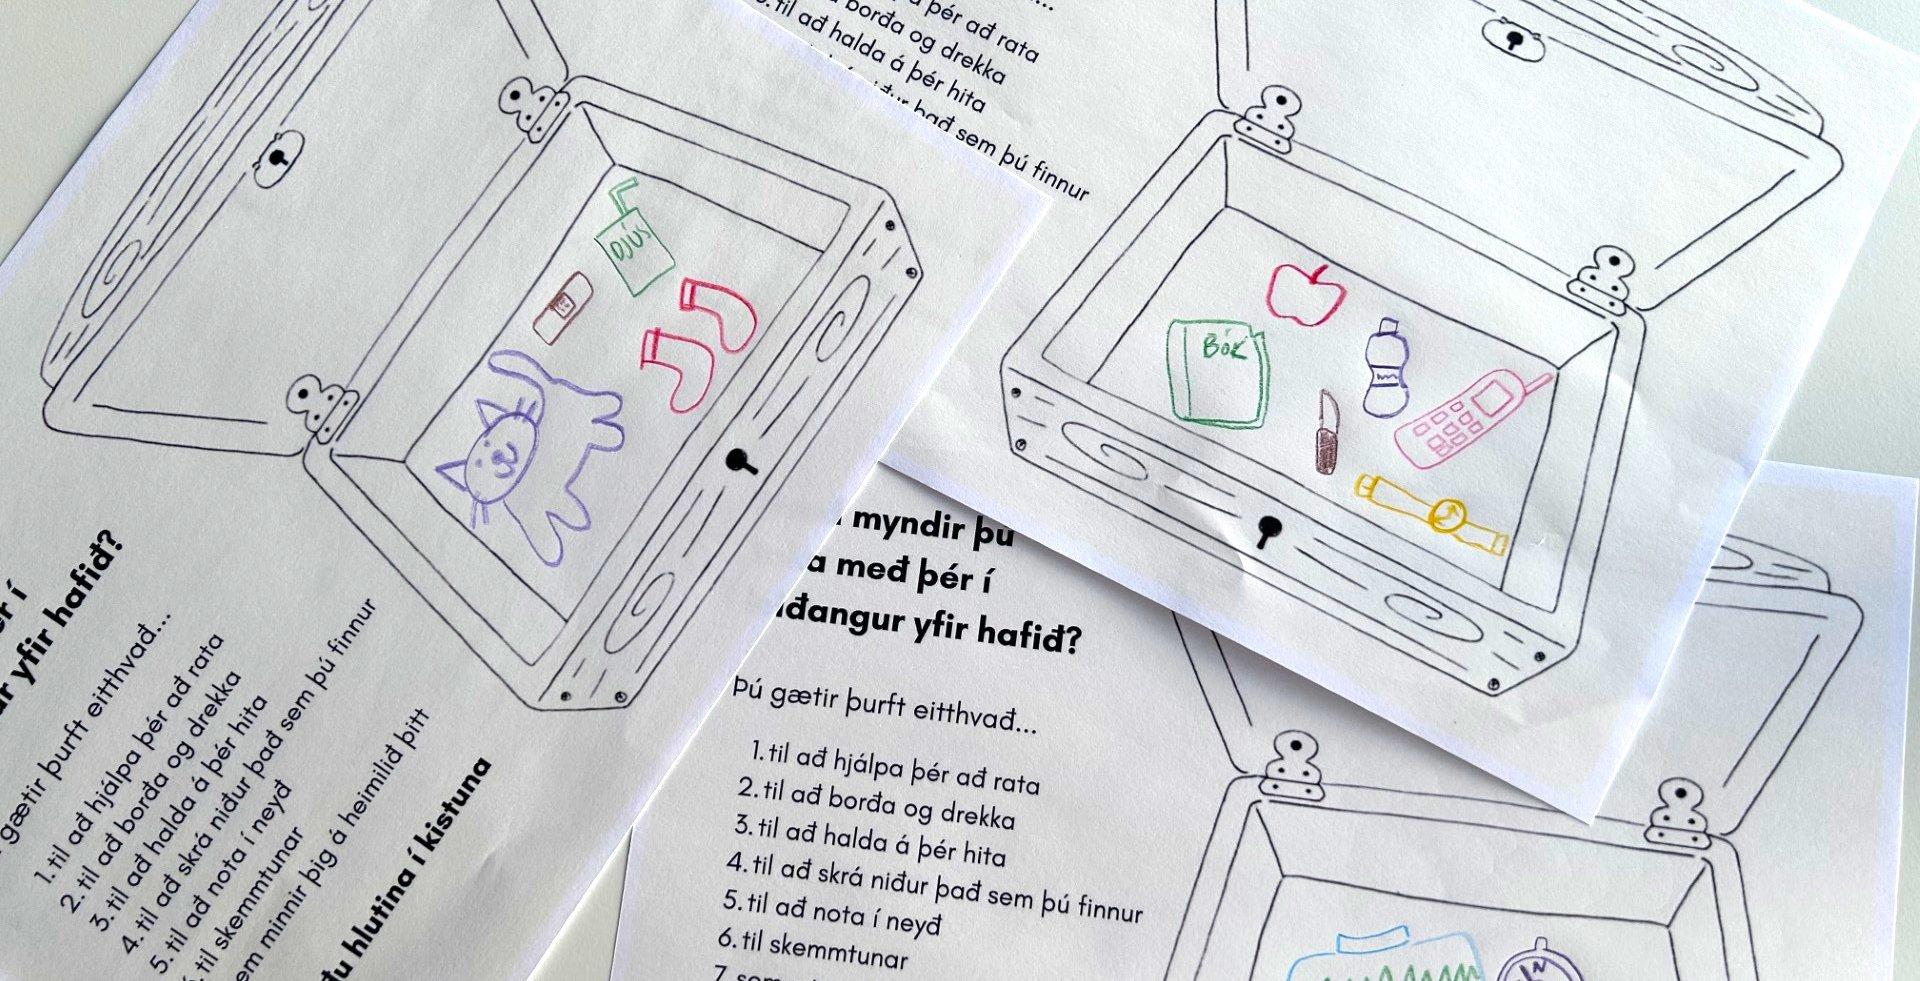 þér að rata
borða og drekka
til að halda á þér hita
það sem þú finnur
DJÚS
BÓK
yfir hafið?
gætir þurft eitthvað...
1. til að hjálpa þér að rata
2. til að borða og drekka
3. til að halda á þér hita
4. til að skrá niður það sem þú finnur
5. til að nota í neyð
til skemmtunar
sem minnir þig á heimilið þitt
hlutina í kistuna
myndir þú
með þér í
yfir hafið?
Þú gætir þurft eitthvað...
1. til að hjálpa þér að rata
2. til að borða og drekka
3. til að halda á þér hita
4. til að skrá niður það sem þú finnur
5. til að nota í neyð
6. til skemmtunar
7.